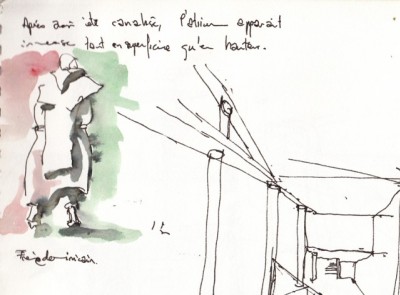 Après avoir été canalisée, l'atrium apparaît
immense tant en superficie qu'en hauteur.
Frère dominicain.